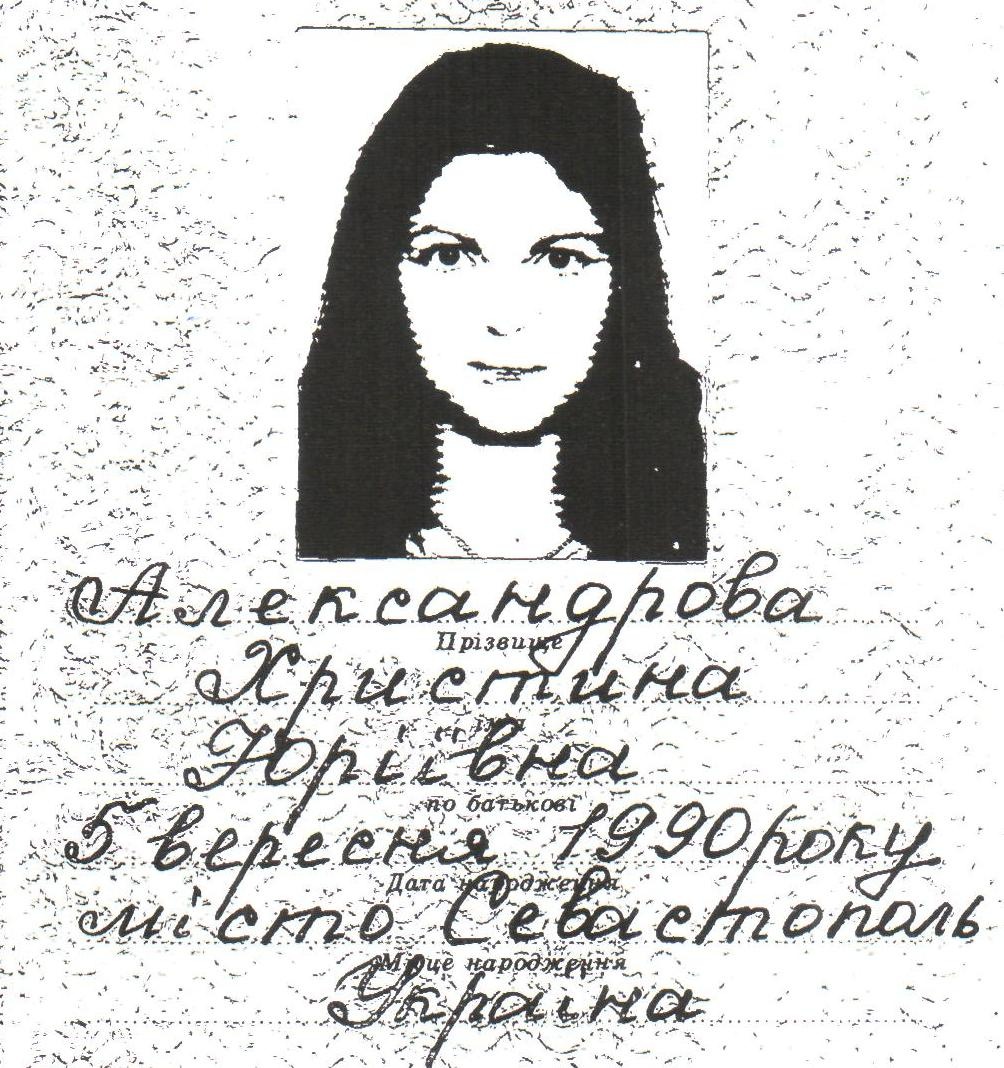 Александрова
Прізвище
Христина
ім'я
Юріївна
по батькові
5 вересня 1990 року
Дата народження
місто Севастополь
Місце народження
Україна